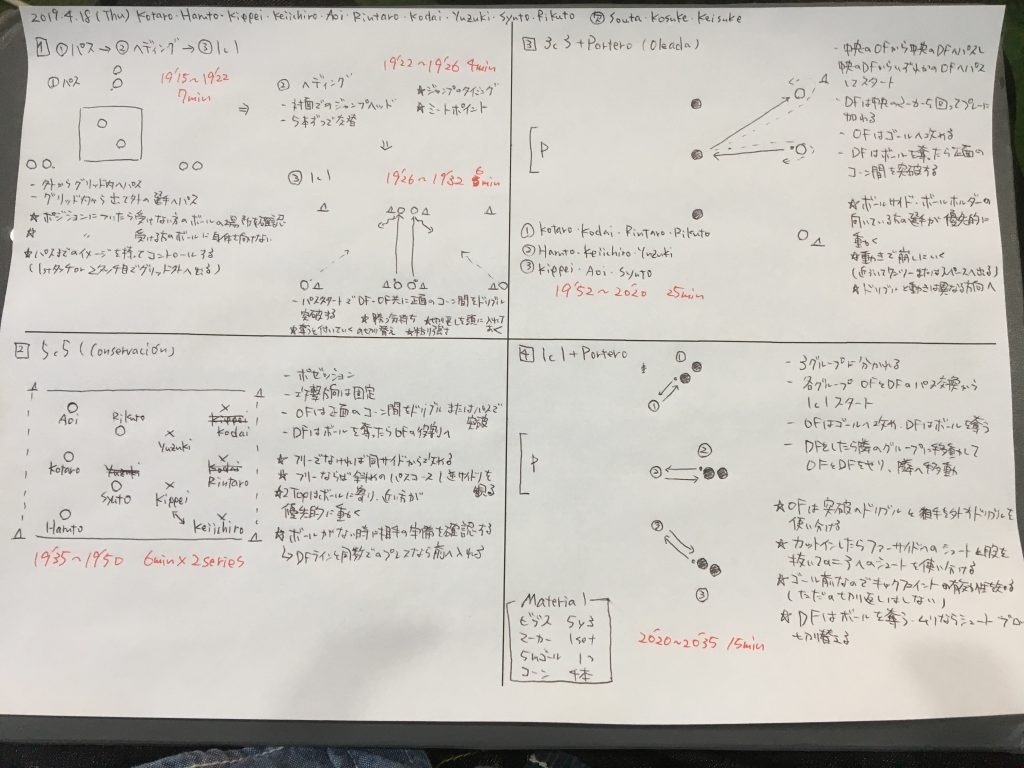 2019.4.18 (Thu) Kotaro・Haruto・Kippei・Keiichiro・Aoi・Rintaro・Kodai・Yuzuki・Syuto・Rikuto 欠 Souta・Kosuke・Keisuke
1 ①パス→②ヘディング→③1c1
①パス
19'15~19'22
7min
- 外からグリッド内へパス
- グリッド内から出て外の選手へパス
★ ポジションについたら受けない方のボールの場所を確認
★ 〃 受ける方のボールに身体を向けない
★パスまでのイメージを持ってコントロールする
(1stタッチor2タッチ目でグリッド外へ出る)
② ヘディング
19'22~19'26 4min
- 対面でのジャンプヘッド
- 5本ずつで交替
★ジャンプのタイミング
★ミートポイント
③ 1c1
19'26~19'32 6min
- パススタートでDF・OF共に正面のコーン間をドリブル
突破する ★勝つ気持ち ★切り返しを頭に入れて
おく
★奪うと付いていくの切り替え ★粘り強さ
2 5c5 (Conservación)
Aoi Rikuto Kippei
Kodai
Yuzuki
Kotaro Yuzuki Kodai
Syuto Kippei Rintaro
Haruto Keiichiro
19'35~19'50 6min×2series
- ポゼッション
- 攻撃方向は固定
- OFは正面のコーン間をドリブルまたはパスで
突破
- DFはボールを奪ったらOFの役割へ
★ フリーでなければ同サイドから攻める
★ フリーならば斜めのパスコース(逆サイド)を
観る
★2Topはボールに寄り、近い方が
優先的に動く
★ボールがない時に相手の準備も確認する
↳DFラインと同数でのプレスなら前へ入れる
3 3c3+Portero (Oleada)
P
① Kotaro・Kodai・Rintaro・Rikuto
② Haruto・Keiichiro・Yuzuki
③ Kippei・Aoi・Syuto
19'52~20'20 25min
- 中央のOFから中央のDFへパスし
中央のDFからいずれかのOFへパス
してスタート
- DFは中央のマーカーを回ってプレーに
加わる
- OFはゴールへ攻める
- DFはボールを奪ったら正面の
コーン間を突破する
★ボールサイド・ボールホルダーの
向いている方の選手が優先的に
動く
★動きで崩しにいく
(近づいてワンツーまたはスペースへ出る)
★ドリブルと動きは異なる方向へ
4 1c1+Portero
①
①
②
②
P
②
③
- 3グループに分かれる
- 各グループOFとDFのパス交換から
1c1スタート
- OFはゴールへ攻め、DFはボールを奪う
- DFをしたら隣のグループに移動して
OFとDFをやり、隣へ移動
★OFは突破のドリブルと相手を外すドリブルを
使い分ける
★カットインしたらファーサイドへのシュートと股を
抜いてのニアへのシュートを使い分ける
★ゴール前なのでキックフェイントの有効性を高める
(ただの切り返しはしない)
★DFはボールを奪う・ムリならシュートブロ
切り替える
20'20~20'35 15min
Material
ビブス 5y3
マーカー 1set
5mゴール 1つ
コーン 4本